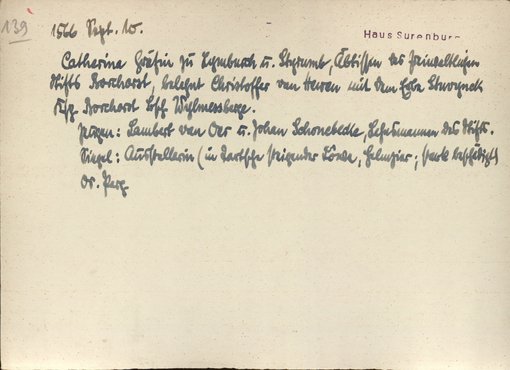 139
1566 Sept. 10.
Haus Surenburg
Catharina Gräfin zu Lymburch u. Styrumb, Äbtissin des freiweltlichen
Stifts Borchorst, belehnt Christoffer van Heren mit dem Erbe
Ksp. Borchorst Bsch.
Zeugen: Lambert van Oer u. Johan Schonebecke, Lehnsmannen des Stifts.
Siegel: Ausstellerin (in Tartsche steigender Löwe, Helmzier; stark beschädigt)
Or. Perg.